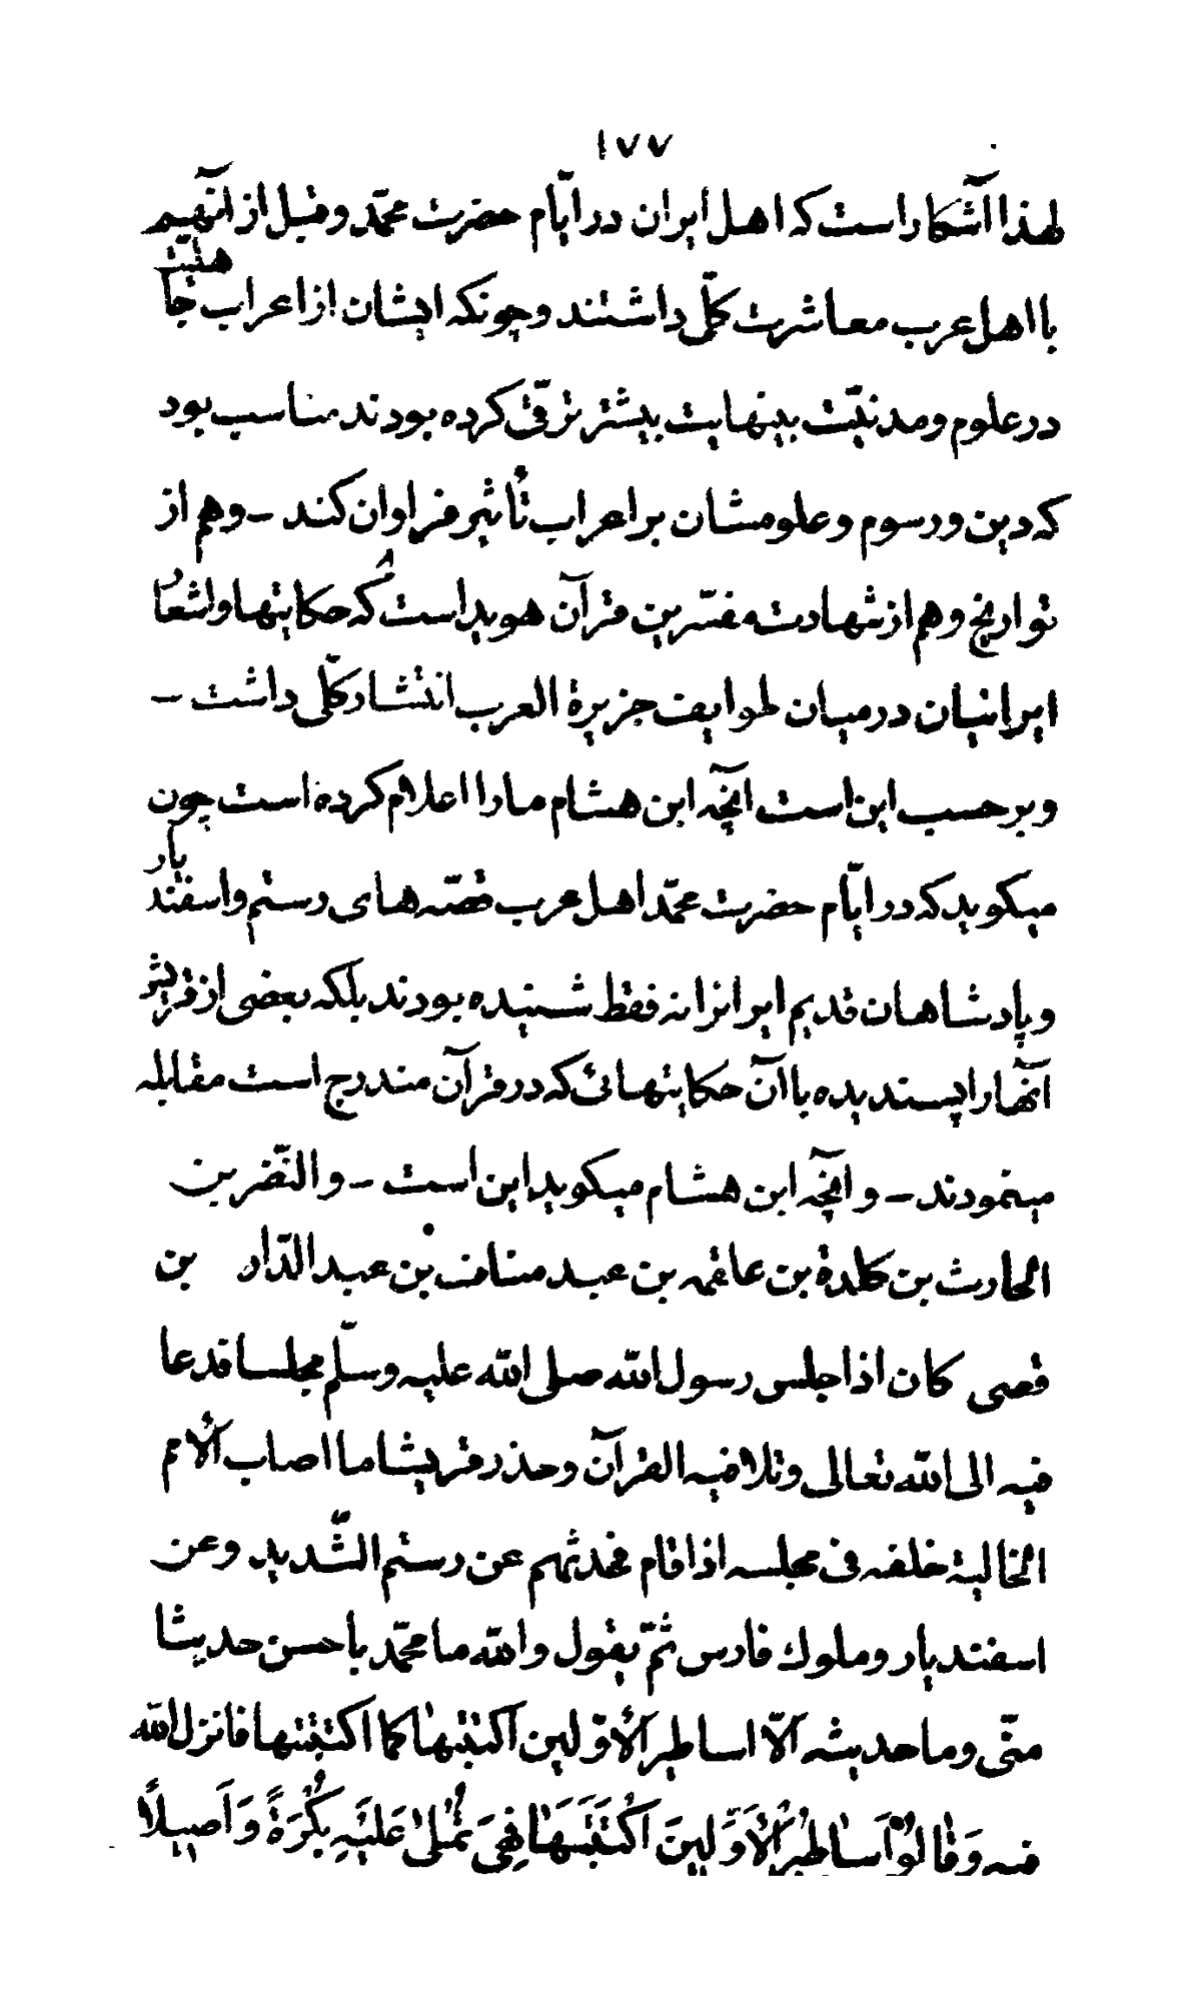 ١٧٧
لهذا آشکار است که اهل ایران در ایّام حضرت محمّد و قبل از آنهم
با اهل عرب معاشرت کلّی داشتند و چونکه ایشان از اعراب جاهلیّت
در علوم و مدنیّت بینهایت بیشتر ترقّی کرده بودند مناسب بود
که دین و رسوم و علومشان بر اعراب تأثیر فراوان کند - و هم از
تواریخ و هم از شهادت مفسّرین قرآن هویدا است که حکایتها و اشعار
ایرانیان در میان طوایف جزیرة العرب انتشار کلّی داشت -
و بر حسب این است آنچه ابن هشام ما را اعلام کرده است چون
میکوید که در ایّام حضرت محمّد اهل عرب قصّه های رستم و اسفندیار
و پادشاهان قدیم ایرانرا نه فقط شنیده بودند بلکه بعضی از قریش
آنها را پسندیده با آن حکایتهائی که در قرآن مندرج است مقابله
مینمودند - و آنچه ابن هشام میکوید این است - والنّضر بن
الحارث بن کلدة بن علقمه بن عبد مناف بن عبد الدّار بن
قصی کان اذا جلس رسول الله صلی الله علیه وسلّم مجلسا فدعا
فیه الی الله تعالی وتلا فیه القرآن وحذر قریشا ما اصاب الأمم
الخالیة خلفه فی مجلسه اذا قام فحدثهم عن رستم الشّدید وعن
اسفندیار وملوك فارس ثمّ یقول والله ما محمّد باحسن حدیثا
منّی وما حدیثه الّا اساطیر الأوّلین اکتتبها کما اکتتبتها فانزل الله
فیه وَقٰالُوْا اَسٰاطِیْرُ الْاَوَّلِینَ اکْتَتَبَهَا فَهِیَ تُمْلیٰ عَلَیْهِ بُکْرَةً وَاَصِیلاً